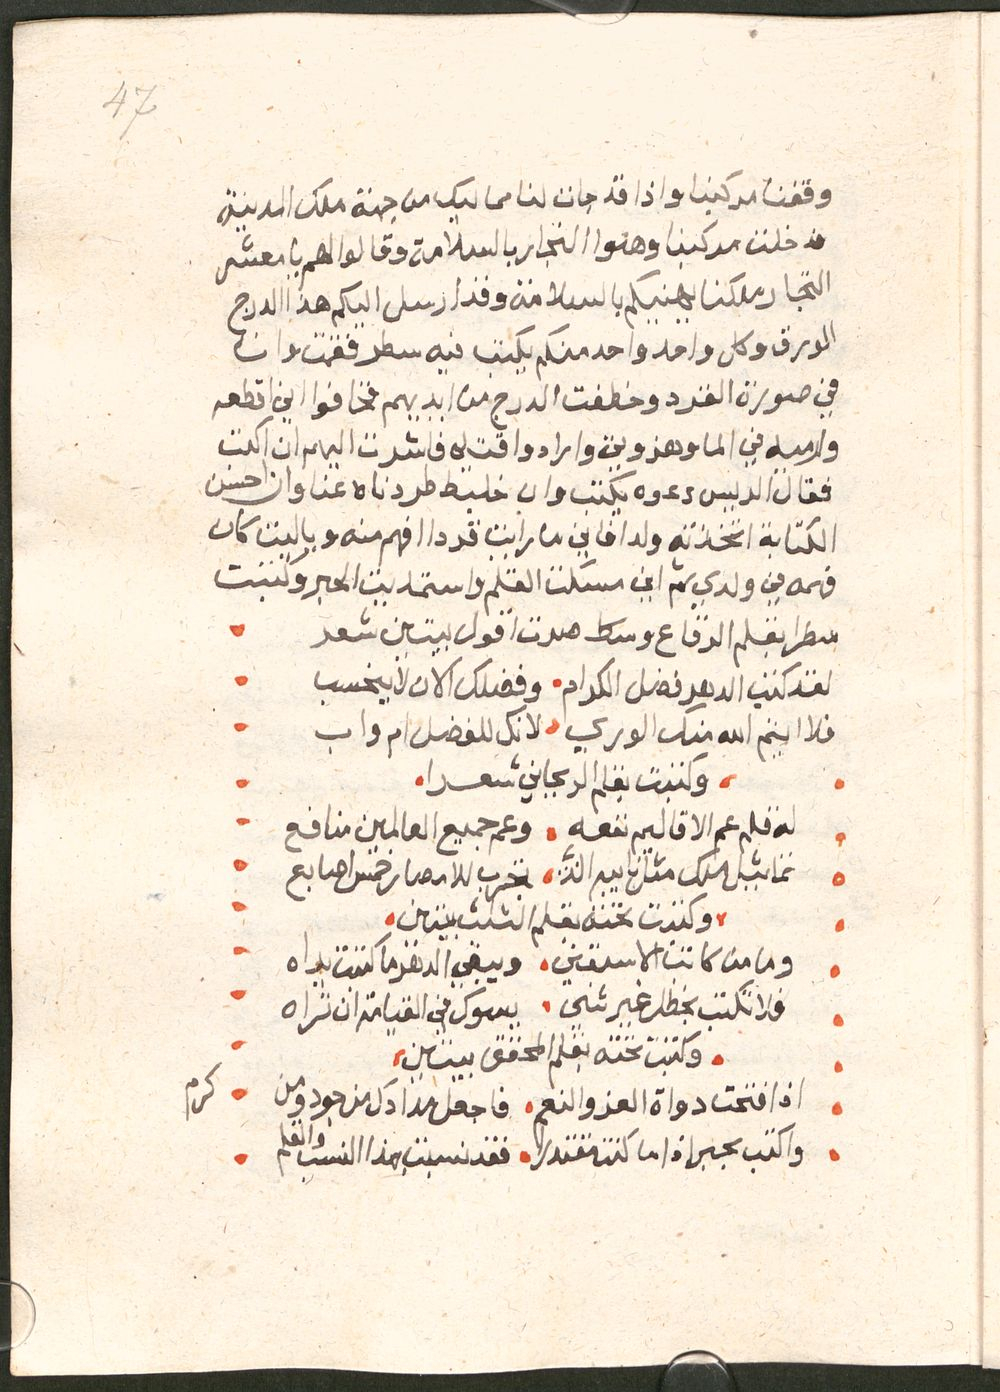 47
وقفت مركبنا واذا قد جات لنا مماليك من جهة ملك المدينة
فدخلت مركبنا وهنوا التجار بالسلامة وقالوا لهم يا معشر
التجار ملكنا يهنيكم بالسلامة وقد ارسل اليكم هذا الدرج
الورق وكل واحد واحد منكم يكتب فيه سطر فقمت وانا
في صورة القرد وخطفت الدرج من ايديهم فخافوا اني اقطعه
وارميه في الما وارادوا قتلي فاشرت اليهم ان اكتب
فقال الريس دعوه يكتب وان خلبط طردناه عنا وان احسن
الكتابة اتخذته ولدا فاني ما رايت قردا افهم منه وياليت كان
فهمه في ولدي ثم اني مسكت القلم واستمديت الحبر وكتبت
سطرا بقلم الرقاع وسط صرت اقول بيتين شعر
لقد كتب الدهر فضل الكرام • وفضلك الان لا يحسب
فلا ايتم الله منك الورى • لانك للفضل ام واب
وكتبت بقلم الريحاني شعرا
له قلم عم الاقاليم نفعه • وعم جميع العالمين منافع
فما نيل ملك مثل نايله الذي • بخرب للامصار خمس اصابع
وكتبت تحته بقلم الثلث بيتين
وما من كاتب الا سيفنى • ويبقي الدهر ما كتبت يداه
فلا تكتب بخطك غير شي • يسرك في القيامة ان تراه
وكتبت تحته بقلم المحقق بيتين
اذا فتحت دواة العز والنعم • فاجعل مدادك من جود ومن كرم
واكتب بخير اذا ما كنت مقتدرا • فقد نسبت بهذا النسب والقلم